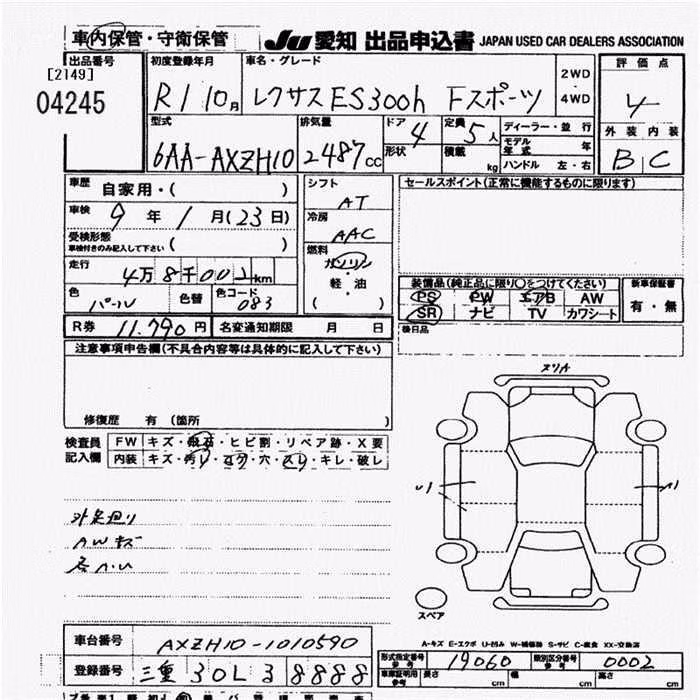 車内保管・守衛保管
JU 愛知 出品申込書 JAPAN USED CAR DEALERS ASSOCIATION
出品番号
[2149]
04245
初度登録年月
R1 10月
車名・グレード
レクサスES300h Fスポーツ
2WD
4WD
評価点
4
外装 内装
B C
型式
6AA-AXZH10
排気量
2487cc
ドア 4
形状
定員 5人
積載 kg
ディーラー・並行
モデル年式 年
ハンドル 左・右
車歴 自家用・( )
車検 9年 1月(23日)
受検形態
車検付きのみ記入して下さい ( )
走行 4万8千001km
色 パール 色替 色コード 083
R券 11,790円 名変通知期限 月 日
シフト
AT
冷房
AAC
燃料
ガソリン
・軽・油
( )
セールスポイント(正常に機能するものに限ります)
装備品(純正品に限り○をつけてください)
PS PW エアB AW
SR ナビ TV カワシート
新車保証書
有・無
後日品
注意事項申告欄(不具合内容等は具体的に記入して下さい)
修復歴 有 (箇所 )
検査員
記入欄
FW キズ・飛石・ヒビ割・リペア跡・X要
内装 キズ・汚レ・コゲ・穴・スレ・キレ・破レ
外装廻り
AWキズ
スペア
A-キズ E-エクボ U-凹み W-補修跡 S-サビ C-腐食 XX-交換済
車台番号 AXZH10-1010590
登録番号 三重 30L 3 8888
形式指定番号
参考
19060
類別区分番号
参考
0002
車庫証明用
参考
長さ cm 幅 cm 高さ cm